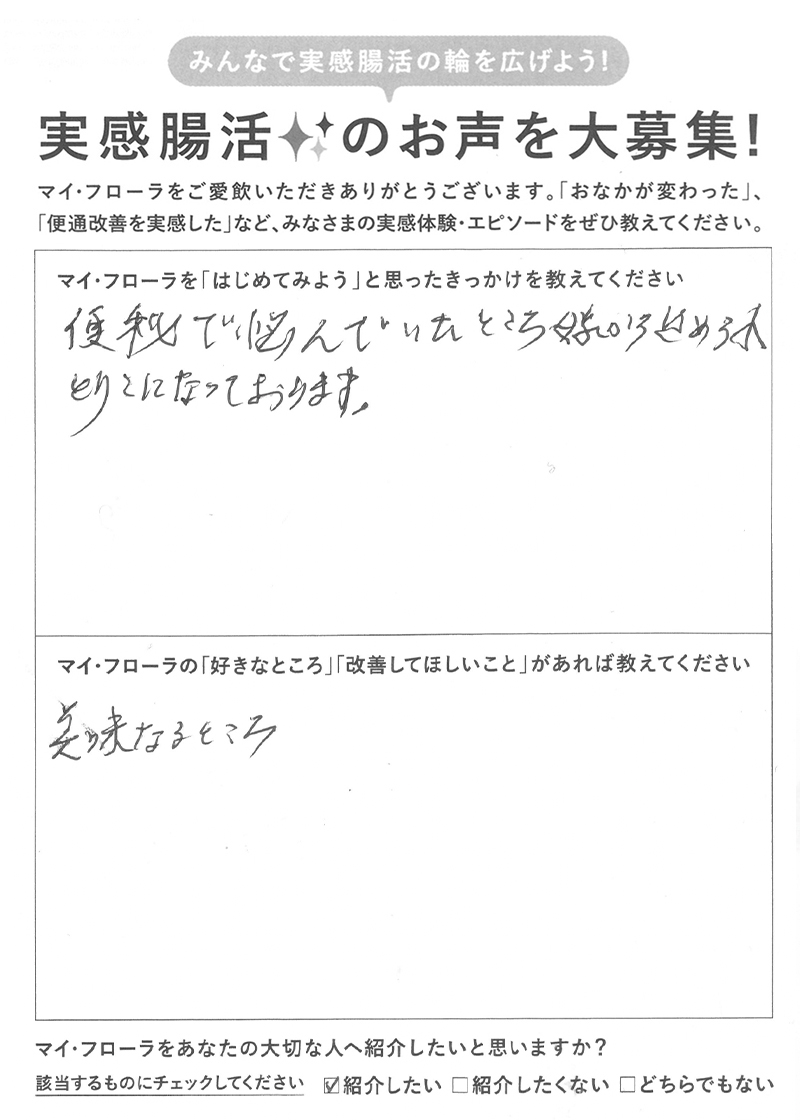 みんなで実感腸活の輪を広げよう!
実感腸活のお声を大募集!
マイ・フローラをご愛飲いただきありがとうございます。「おなかが変わった」、
「便通改善を実感した」など、みなさまの実感体験・エピソードをぜひ教えてください。
マイ・フローラを「はじめてみよう」と思ったきっかけを教えてください
便秘で悩んでいたところ嫁から進められ
とりこになっております。
マイ・フローラの「好きなところ」「改善してほしいこと」があれば教えてください
美味なるところ
マイ・フローラをあなたの大切な人へ紹介したいと思いますか?
該当するものにチェックしてください ☑紹介したい □紹介したくない □どちらでもない